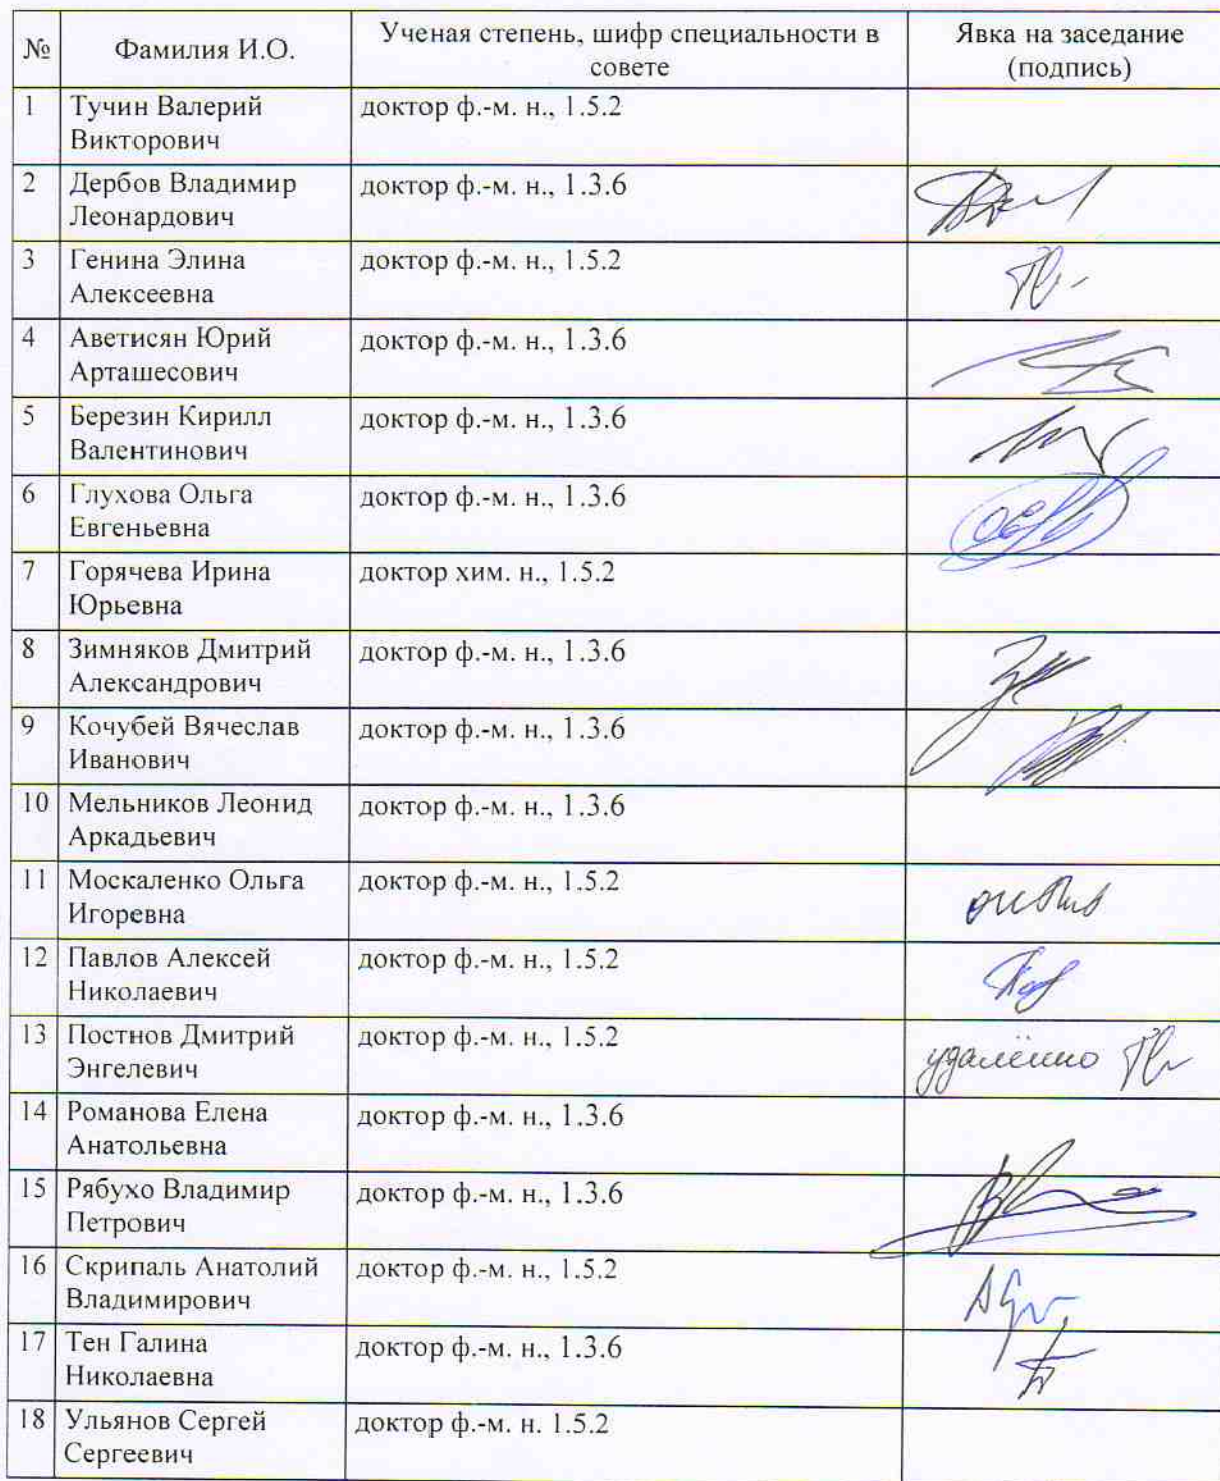 №
Фамилия И.О.
Ученая степень, шифр специальности в
совете
Явка на заседание
(подпись)
1
Тучин Валерий
Викторович
доктор ф.-м. н., 1.5.2
2
Дербов Владимир
Леонардович
доктор ф.-м. н., 1.3.6
3
Генина Элина
Алексеевна
доктор ф.-м. н., 1.5.2
4
Аветисян Юрий
Арташесович
доктор ф.-м. н., 1.3.6
5
Березин Кирилл
Валентинович
доктор ф.-м. н., 1.3.6
6
Глухова Ольга
Евгеньевна
доктор ф.-м. н., 1.3.6
7
Горячева Ирина
Юрьевна
доктор хим. н., 1.5.2
8
Зимняков Дмитрий
Александрович
доктор ф.-м. н., 1.3.6
9
Кочубей Вячеслав
Иванович
доктор ф.-м. н., 1.3.6
10
Мельников Леонид
Аркадьевич
доктор ф.-м. н., 1.3.6
11
Москаленко Ольга
Игоревна
доктор ф.-м. н., 1.5.2
12
Павлов Алексей
Николаевич
доктор ф.-м. н., 1.5.2
13
Постнов Дмитрий
Энгелевич
доктор ф.-м. н., 1.5.2
удалённо
14
Романова Елена
Анатольевна
доктор ф.-м. н., 1.3.6
15
Рябухо Владимир
Петрович
доктор ф.-м. н., 1.3.6
16
Скрипаль Анатолий
Владимирович
доктор ф.-м. н., 1.5.2
17
Тен Галина
Николаевна
доктор ф.-м. н., 1.3.6
18
Ульянов Сергей
Сергеевич
доктор ф.-м. н. 1.5.2